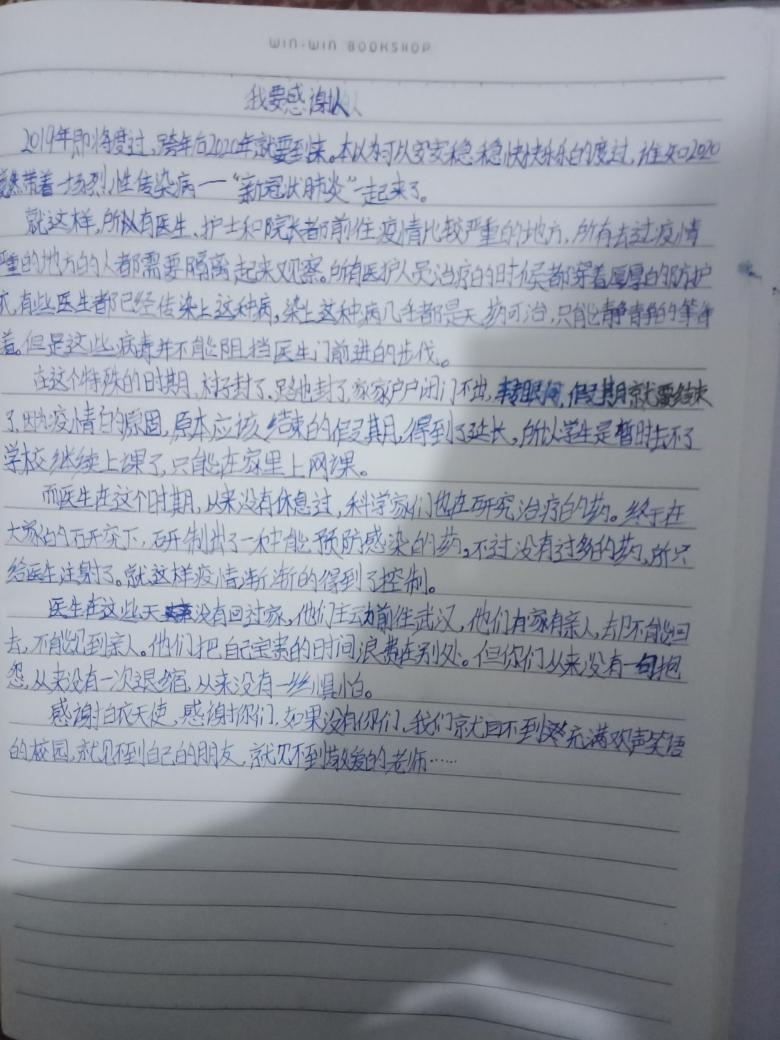 WIN-WIN BOOKSHOP
我要感谢
2019年即将度过,跨年台2020年就要到来。本以为可以安安稳稳快快乐乐的度过,谁知2020
带着一场烈性传染病——“新冠状肺炎”一起来了。
就这样,所以有医生、护士和院长都前往疫情比较严重的地方,所有去过疫情
重的地方的人都需要隔离起来观察。所有医护人员治疗的时候都穿着厚厚的防护
衣,有些医生都已经传染上这种病,染上这种病几乎都是无药可治,只能静静的等待
着。但是这些病毒并不能阻挡医生门前进的步伐。
在这个特殊的时期,村封了,路也封了,家家户户闭门不出,转眼间,假期就要结束
了,因为疫情的原因,原本应该结束的假期,得到了延长,所以学生是暂时去不了
学校继续上课了,只能在家里上网课。
而医生在这个时期,从来没有休息过,科学家们也在研究治疗的药。终于在
大家的研究下,研制出了一种能预防感染的药。不过没有过多的药,所只
给医生注射了。就这样疫情渐渐的得到了控制。
医生在这些天没有回过家,他们主动前往武汉,他们有家有亲人,却不能回
去,不能见到亲人。他们把自己宝贵的时间浪费在别处。但你们从来没有一句抱
怨,从来没有一次退缩,从来没有一丝惧怕。
感谢白衣天使,感谢你们,如果没有你们,我们就回不到充满欢声笑语
的校园,就见不到自己的朋友,就见不到敬爱的老师……